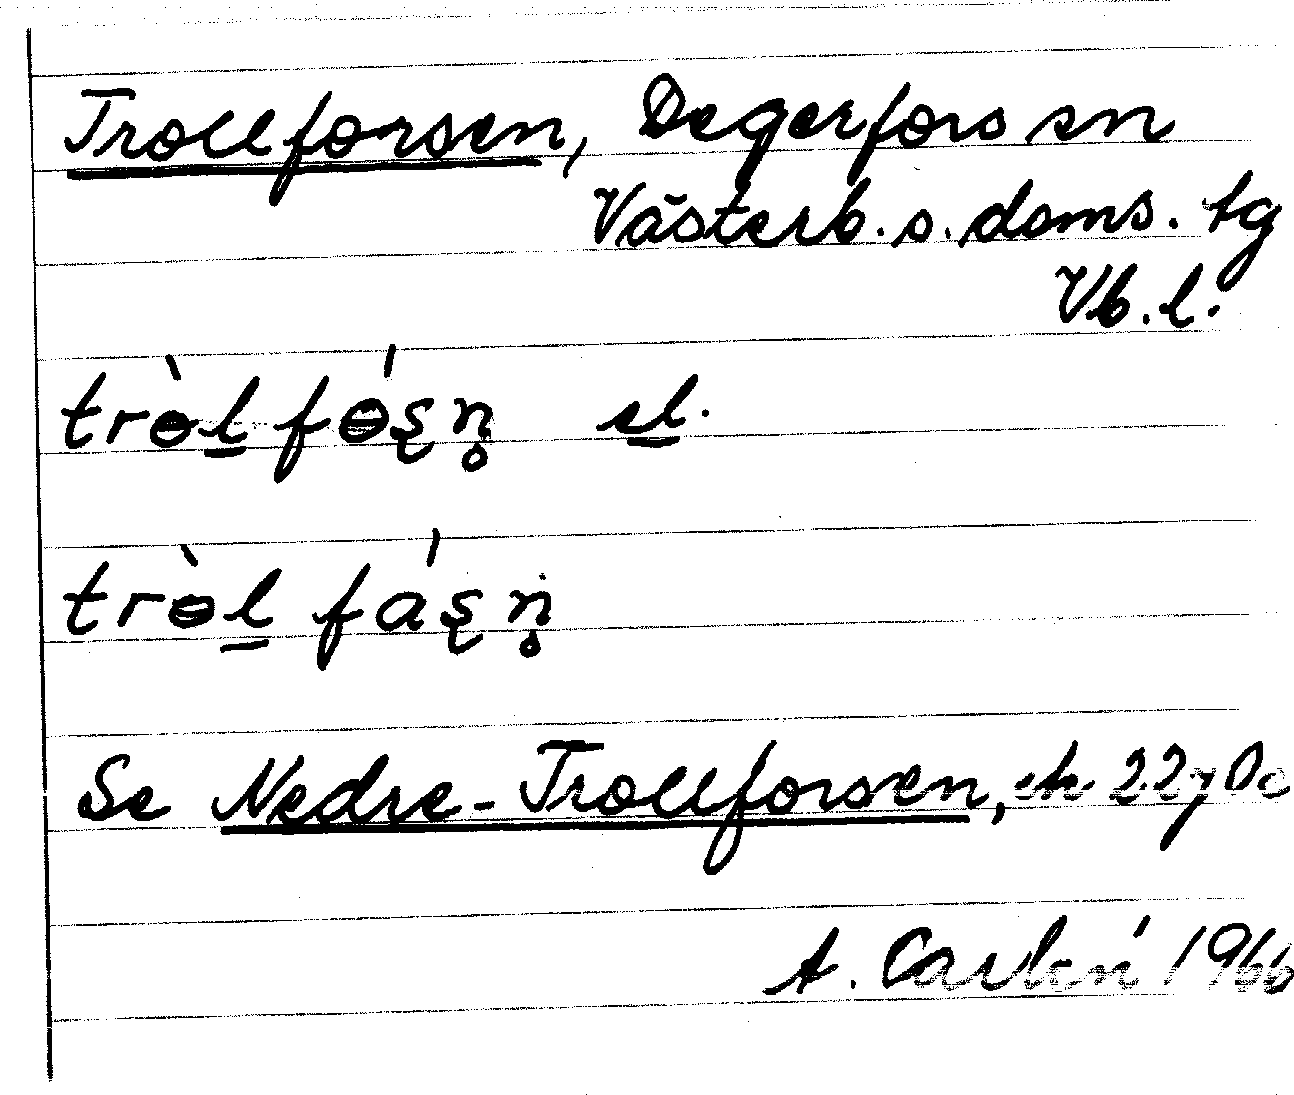 Trollforsen, Degerfors sn
Västerb. s. doms. tg
Vb. l.
trɵ̀l̠ fɵ́ʂn̥ el.
trɵ̀l̠ fáʂn̥
Se Nedre-Trollforsen, ek 22g0c
A. Carlén 1966